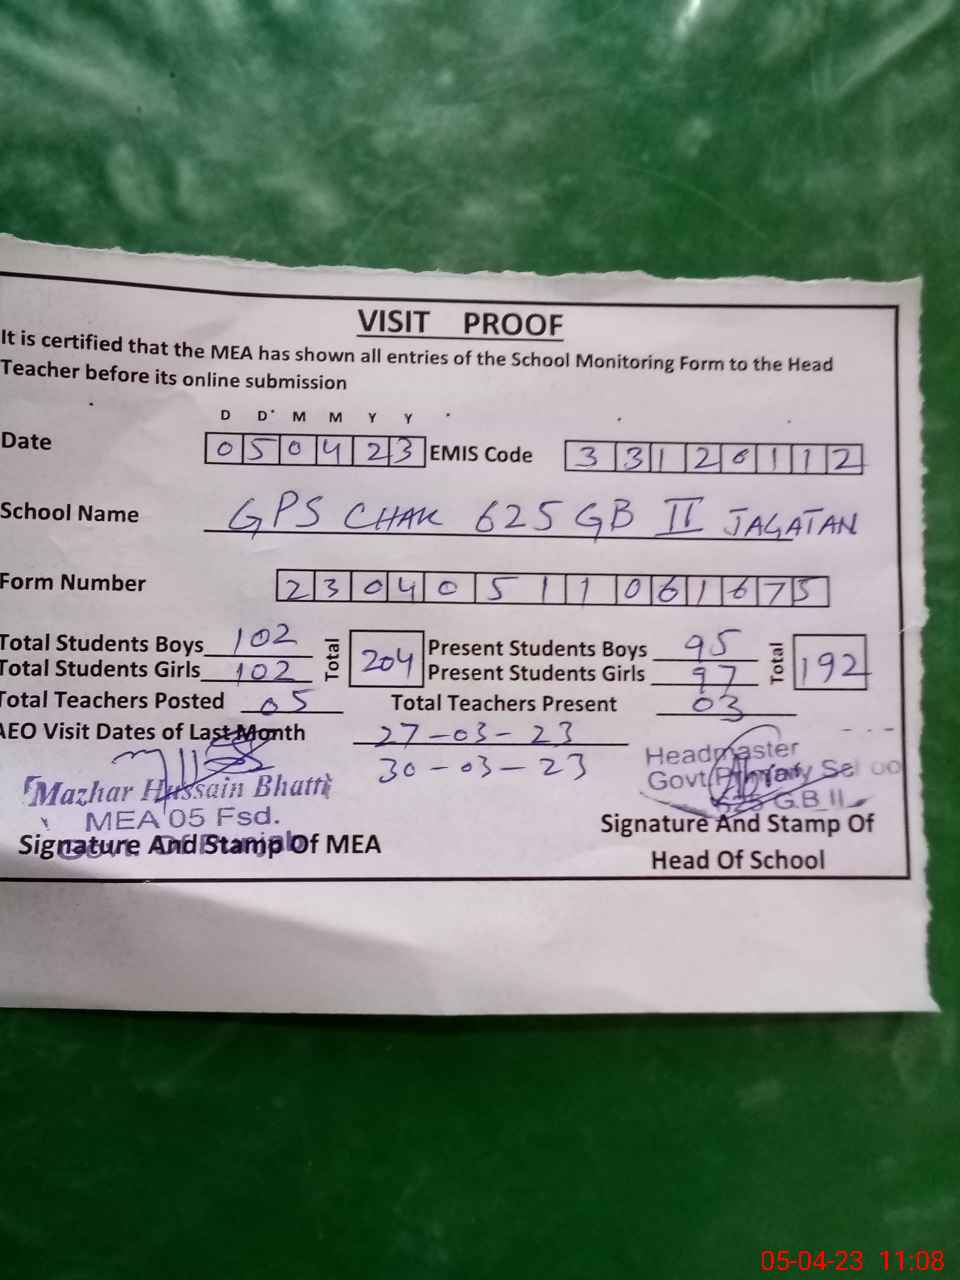 VISIT PROOF
It is certified that the MEA has shown all entries of the School Monitoring Form to the Head
Teacher before its online submission
D D M M Y Y
Date 050423 EMIS Code 33120112
School Name GPS CHAK 625 GB II JAGATAN
Form Number 23040511061675
Total Students Boys 102 Total 204 Present Students Boys 95 Total 192
Total Students Girls 102 Present Students Girls 97
Total Teachers Posted 05 Total Teachers Present 03
AEO Visit Dates of Last Month 27-03-23
30-03-23
Mazhar Hussain Bhatti
MEA 05 Fsd.
Govt. Of Punjab
Signature And Stamp Of MEA
Headmaster
Govt Primary School
625 G.B II
Signature And Stamp Of
Head Of School
05-04-23 11:08